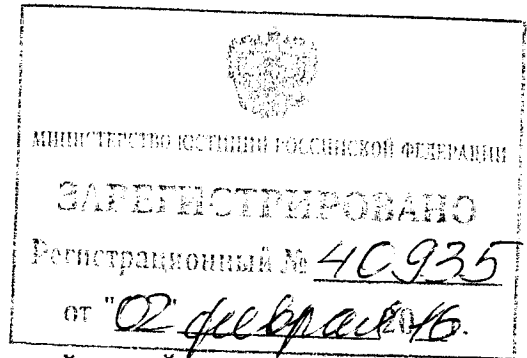 МИНИСТЕРСТВО ЮСТИЦИИ РОССИЙСКОЙ ФЕДЕРАЦИИ
ЗАРЕГИСТРИРОВАНО
Регистрационный № 40935
от "02" февраля 2016.